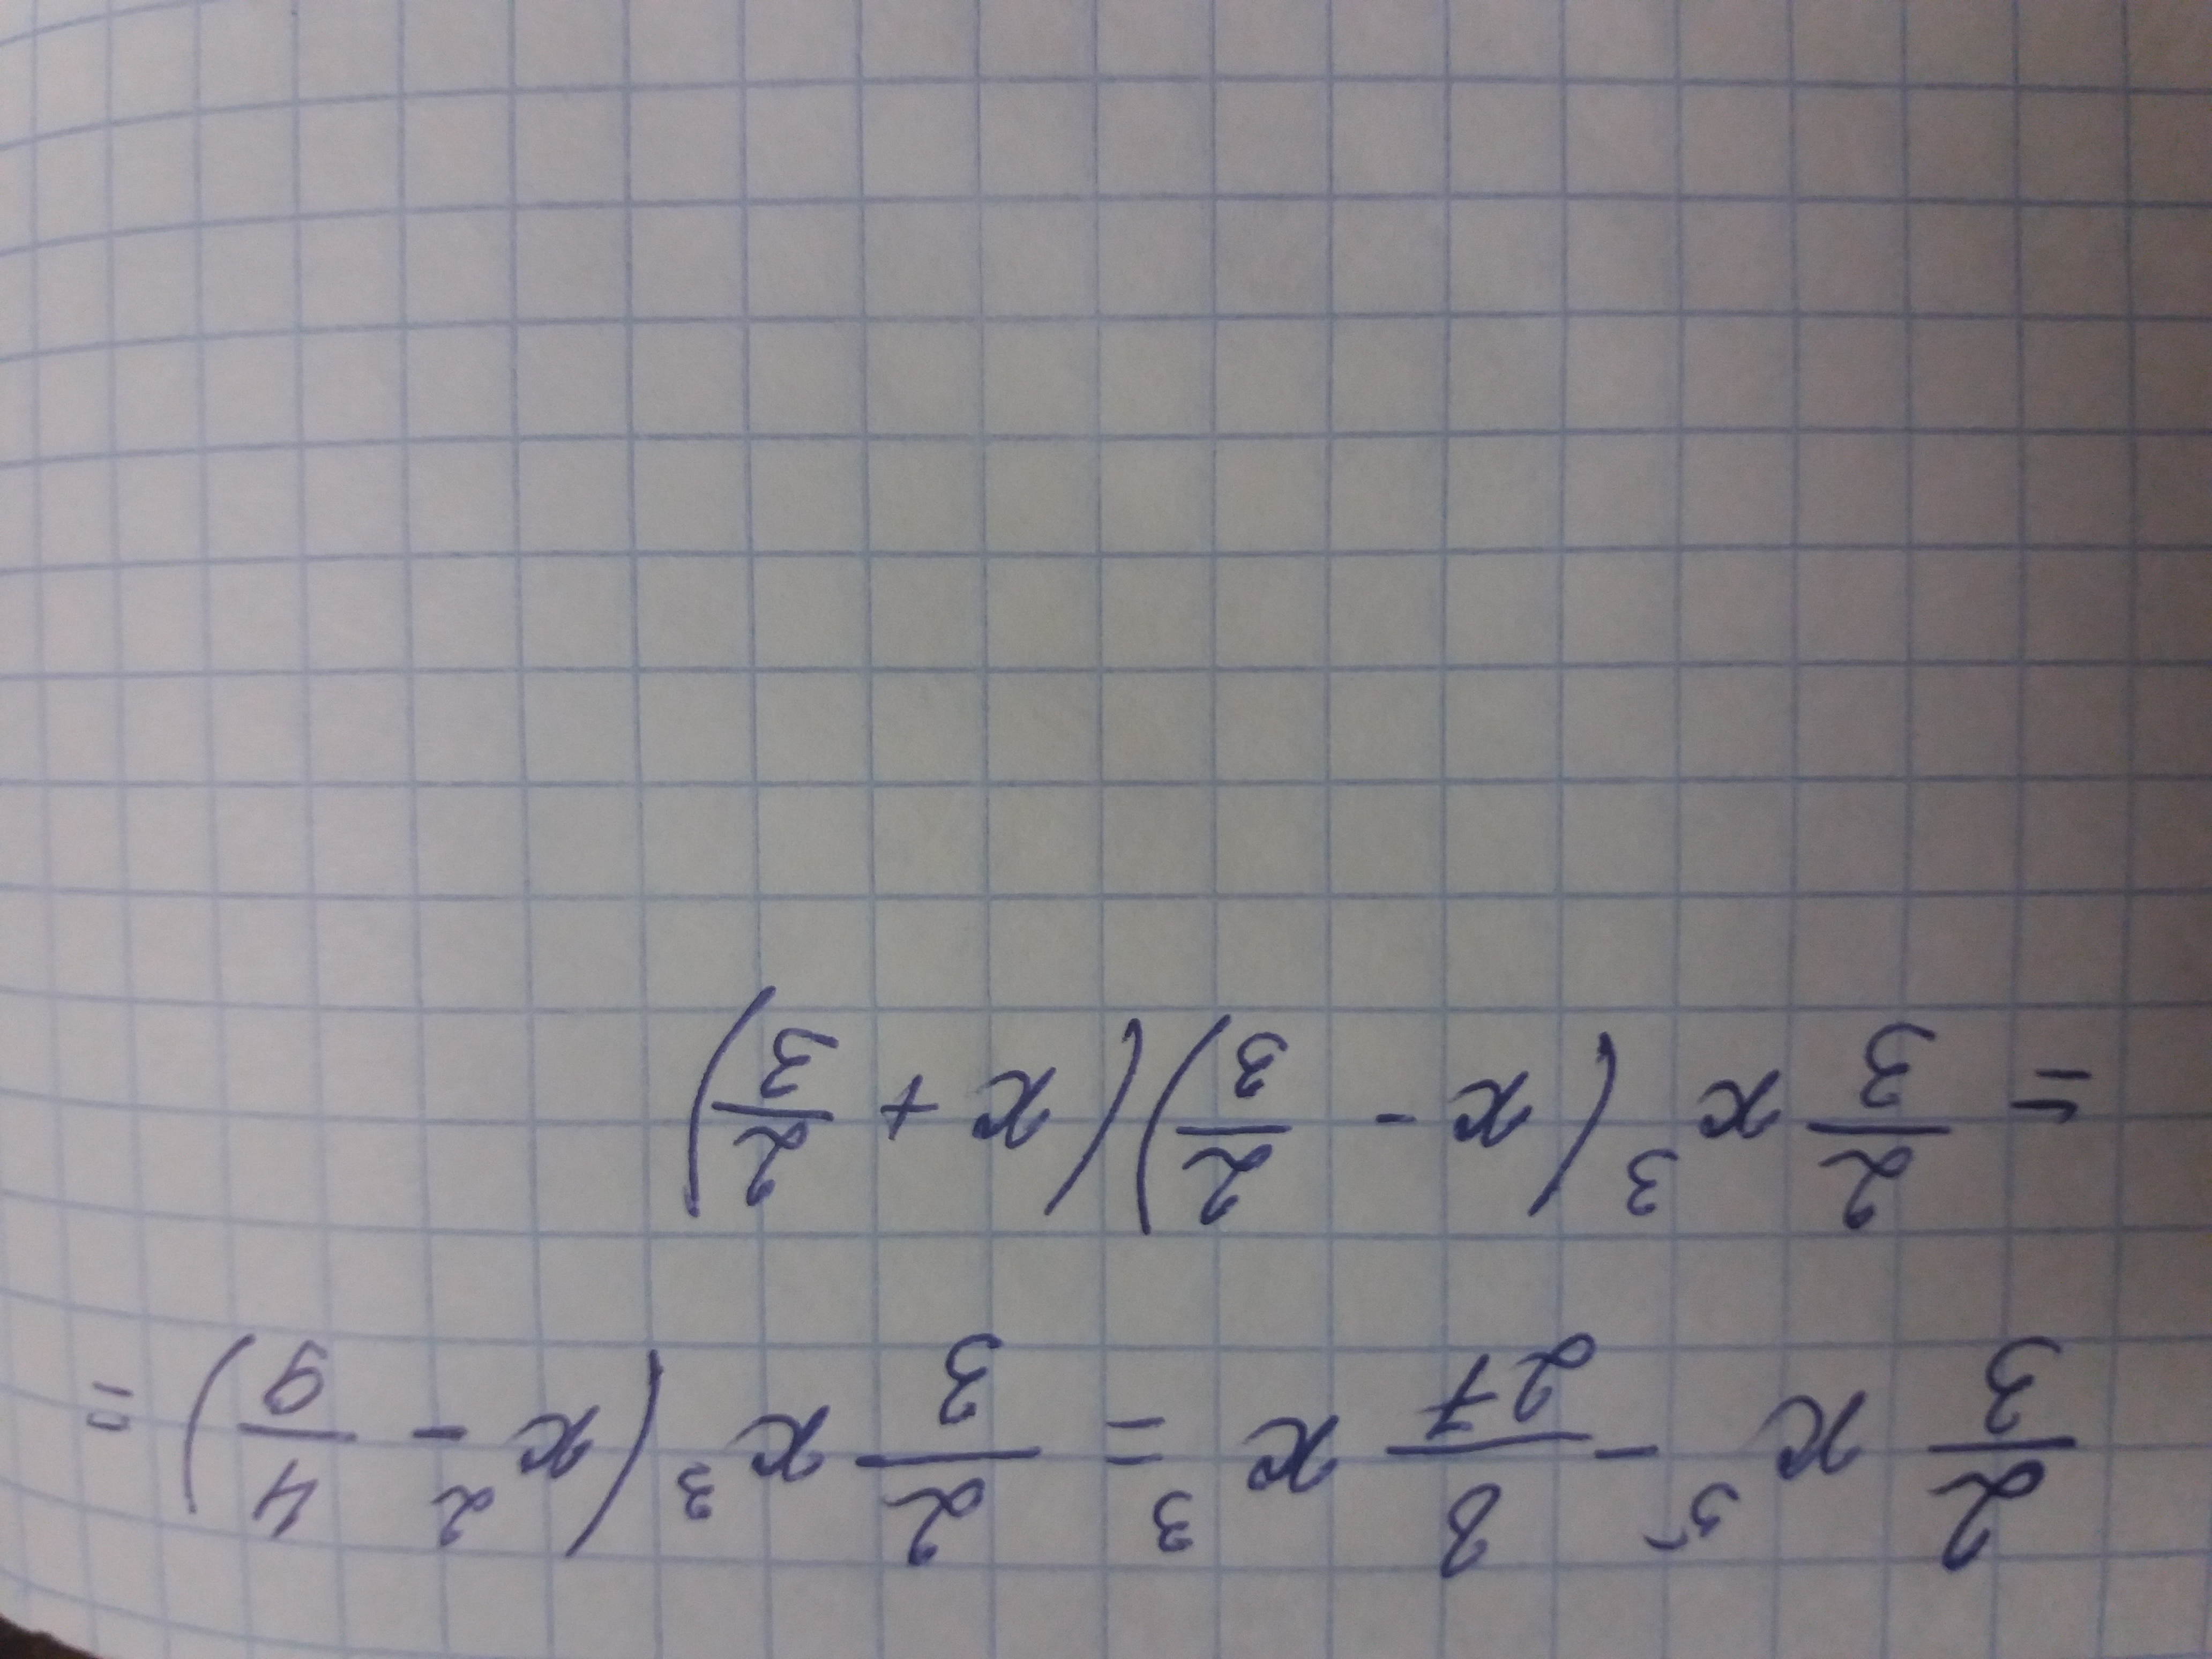 2/3 x⁵ - 8/27 x³ = 2/3 x³ (x² - 4/9) =
= 2/3 x³ (x - 2/3)(x + 2/3)